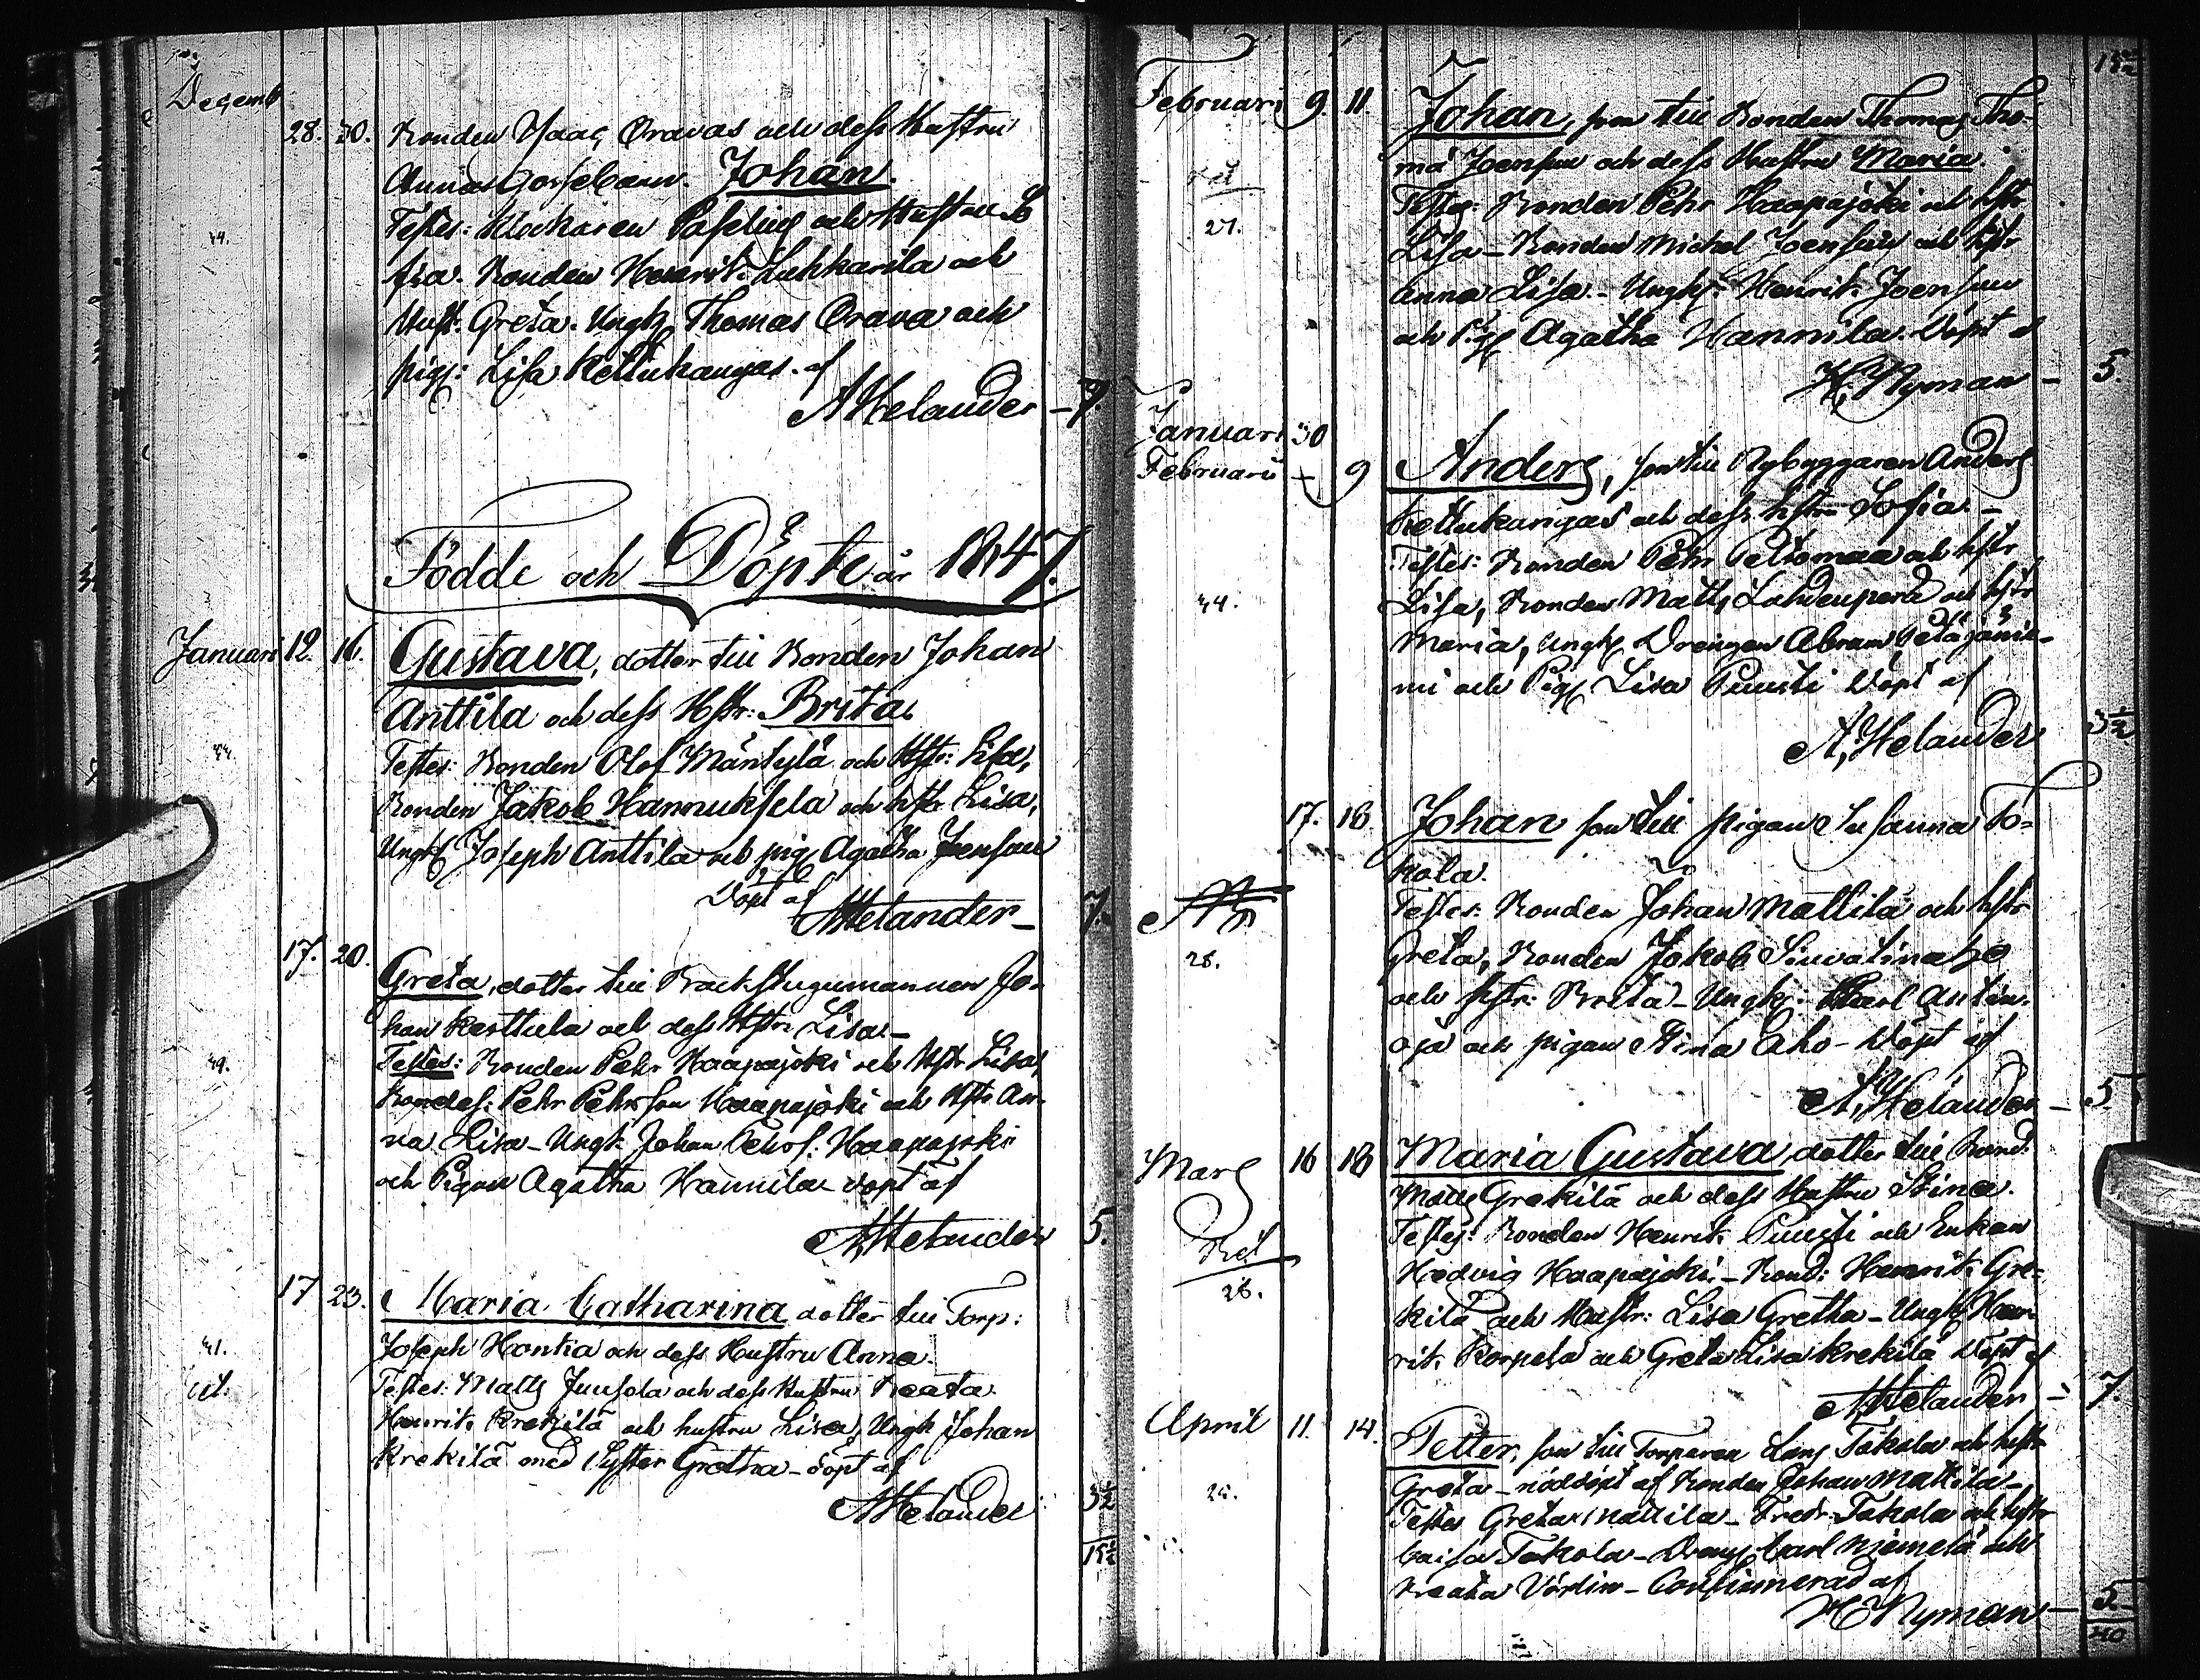 Decemb
28. 30. Bonden Isaac Oravas och dess Hustru
Annas Gossebarn. Johan.
Testes: Klockaren Paselius och Hustru So
fia. Bonden Henrik Luhkarila och
Hust. Greta. Ungk Thomas Orava och
pig: Lisa Kettukangas. af
AHelander – 7.
44.
Födde och Döpte år 1847.
Januari 12. 16. Gustava, dotter till Bonden Johan
Anttila och dess Hstr: Brita.
Testes: Bonden Olof Mäntylä och Hstr: Lisa,
44.
Bonden Jakob Hannuksela och hstr Lisa,
Ungk Joseph Anttila och pig Agatha Joensuu
Döpt af
AHelander – 7.
17. 20. Greta, dotter till Backstugumannen Jo-
han Kerttula och dess Hstr: Lisa. –
Testes: Bonden Pehr Haapajoki och Hstr Lisa,
49.
Bondes: Pehr Pehrson Haapajoki och Hstr An-
na Lisa – Ungk Johan Haapajoki
och Pigan Agatha Hannila – döpt af
AHelander 5.
17 23. Maria Catharina dotter till Torp:
Joseph Honka och dess Hustru Anna.
41.
Testes: Matts Juusola och dess Hustru Beata.
Henrik Krekilä och hustru Lisa, Ungk Johan
Krekilä med Syster Gretha – döpt af
AHelander 3½
19½
19½
Februari 9. 11. Johan, son till Bonden Thomas Tho-
ma Joensuu och dess Hustru Maria.
Testes: Bonden Pehr Haapajoki och hstr
27.
Lisa – Bonden Michel Joensuu och hstr
Anna Lisa. – Ungk: Henrik Joensuu
och Pig Agatha Hannila. Döpt af
H. Nyman – 5.
Januari 30
Februari + 9 Anders, son till Nybyggaren Anders
Kettukangas och dess hstru Sofia. –
Testes: Bonden Pehr Peltomaa och hstr
44.
Lisa, Bonden Matts Lahdenperä och hstr
Maria, Ungk Drengen Abram Petäjänie-
mi och Pig Lisa Puusti Döpt af
A. Helander 3½
17. 18. Johan son till pigan Susanna To-
kola.
Testes: Bonden Johan Mattila och hstr
28.
Greta, Bonden Jakob
och hstr: Brita – Ungk: Karl Antin-
oja och pigan Stina Aho – Döpt af
A. Helander – 5
Mars 16 18 Maria Gustava dotter till Bond:
Matts Grekilä och dess Hustru Stina.
Testes: Bonden Henrik Puusti och Enkan
Hedvig Haapajoki – Bond: Henrik Gre-
28.
kilä och Hustr: Lisa Gretha – Ungk Hen-
rik Korpela och Greta Lisa Krekilä Döpt af
AHelander – 7.
April 11. 14. Petter, son till Torparen Tokola och hstr
Greta – nöddöpt af Bonden Johan Mattila –
25.
Testes Greta Mattila – Fredr: Tokola och hstr
Caisa Tokola – Dreng Carl Niemelä och
Beata – Confirmerad af
H Nyman – 5
40